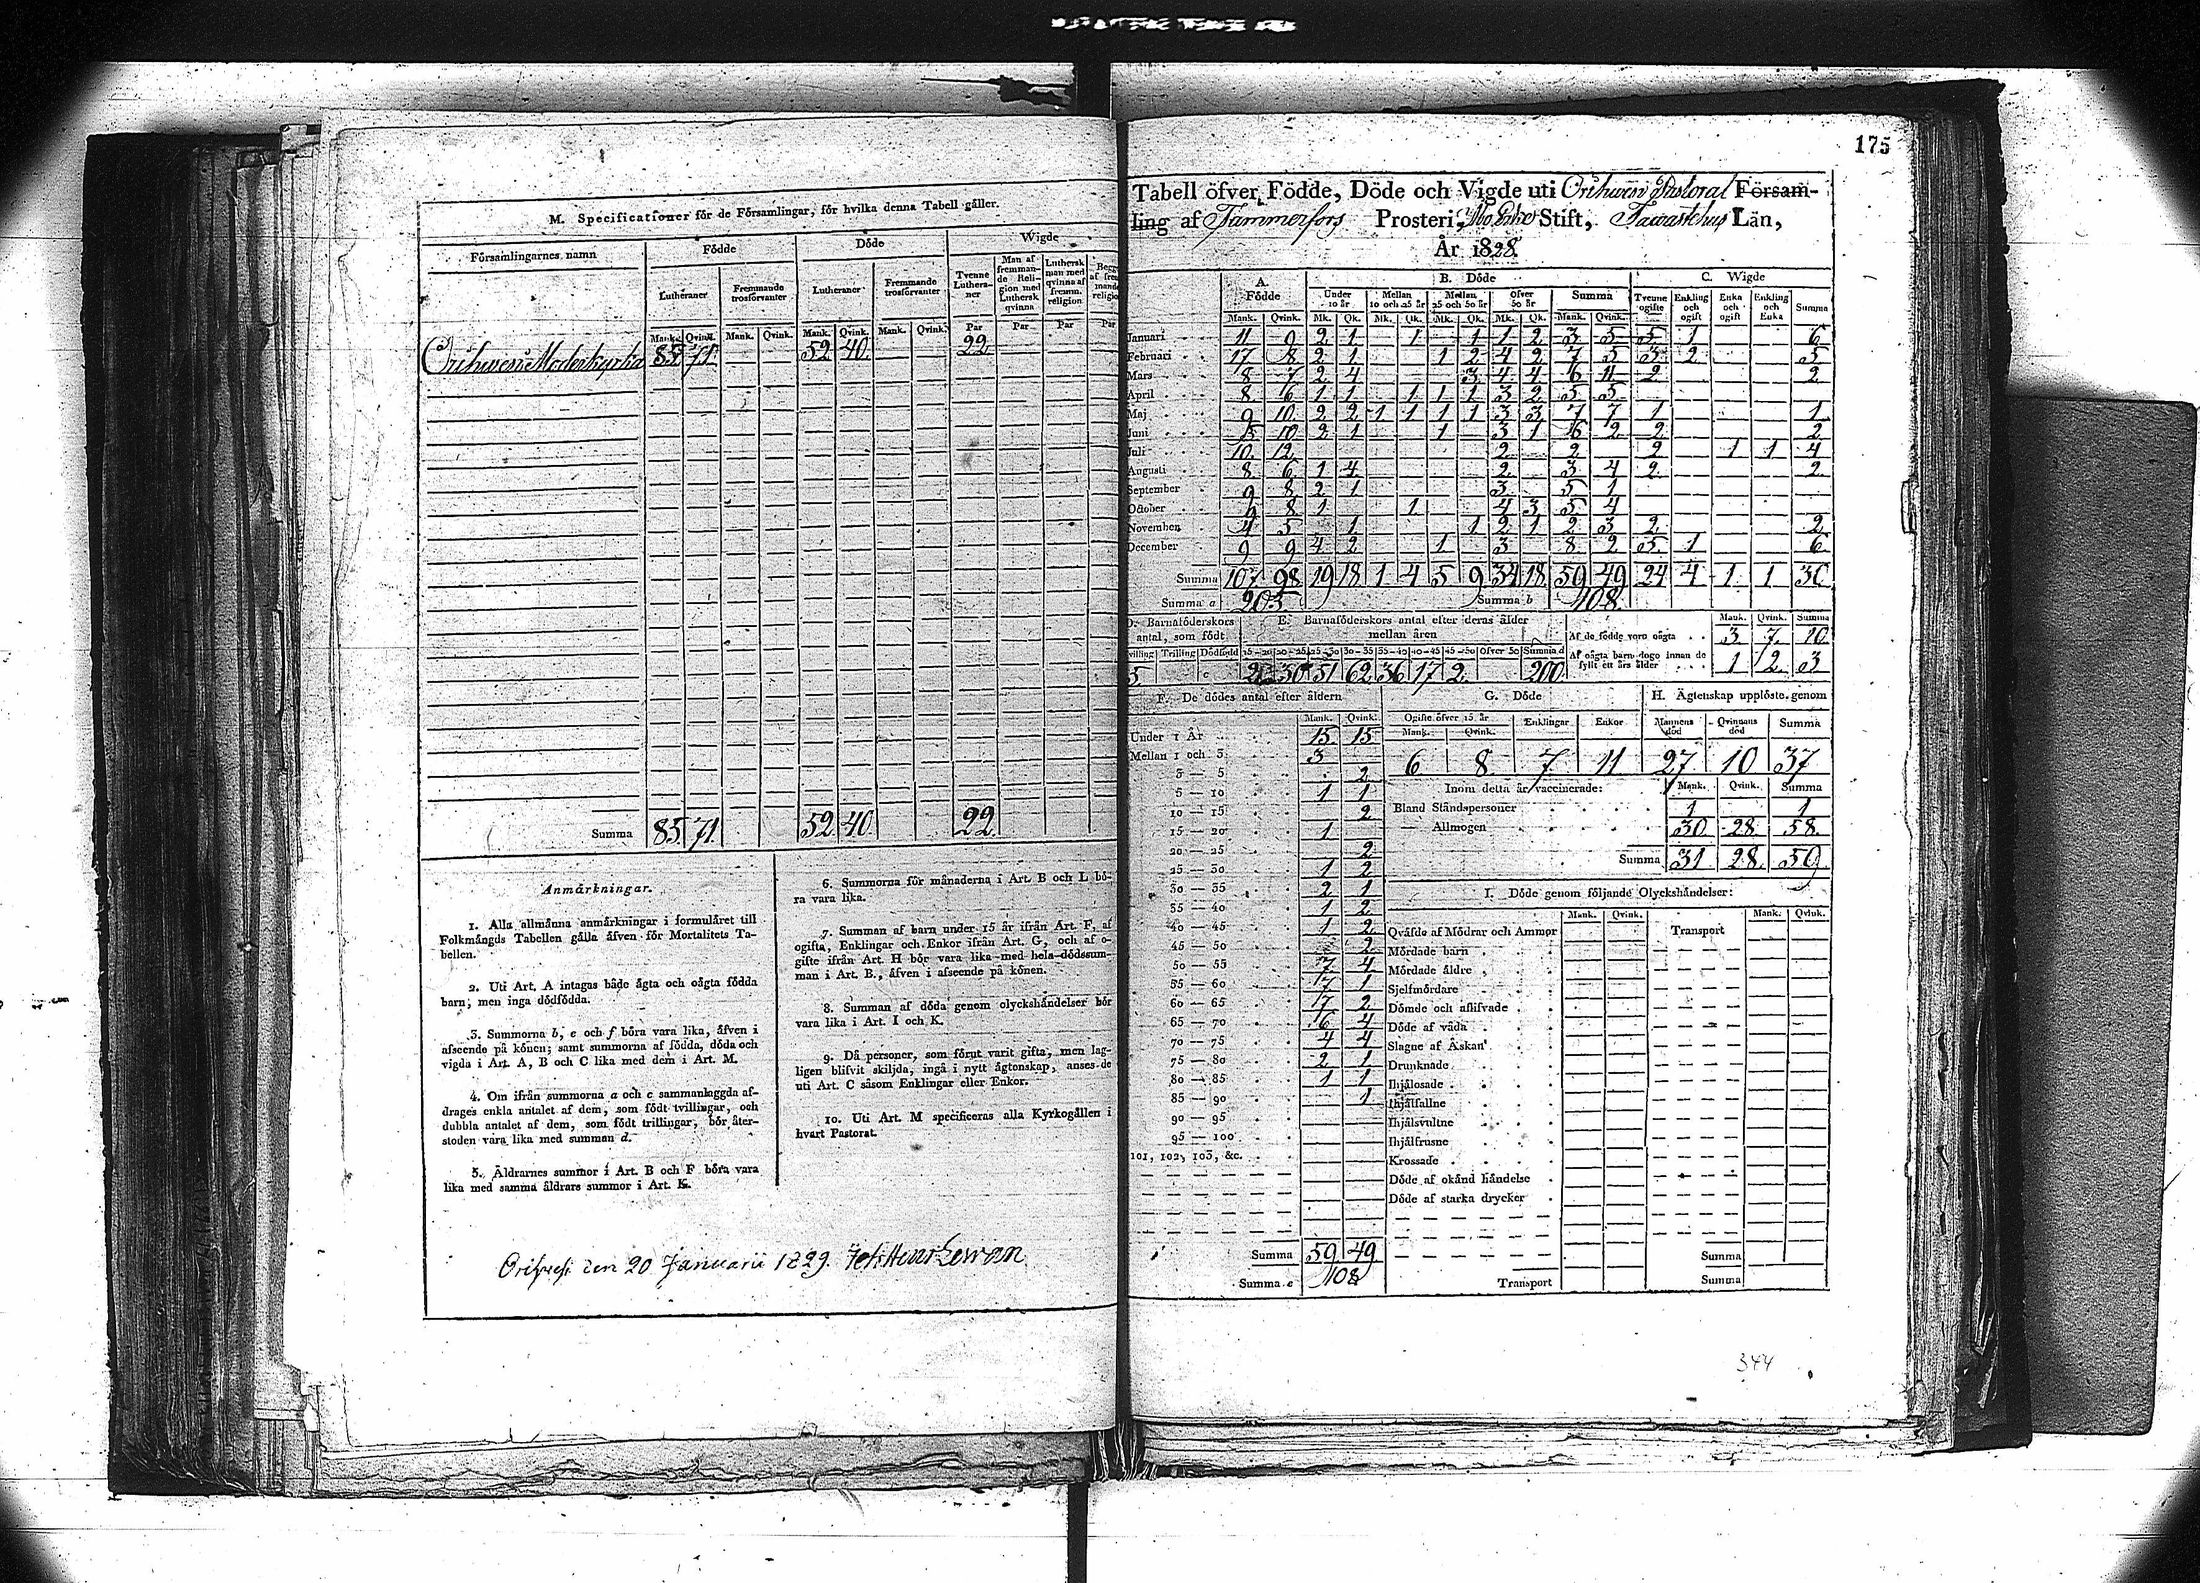 M. Specificationer för de Församlingar, för hvilka denna Tabell gäller.
Församlingarnes namn
Födde
Döde
Wigde
Lutheraner
Fremmande trosförvanter
Lutheraner
Fremmande trosförvanter
Tvenne Lutheraner
Man af fremmande Religion med Luthersk qvinna
Luthersk man med qvinna af fremm. religion
Mank. Qvink. Mank. Qvink. Mank. Qvink. Mank. Qvink. Par Par Par Par
Orihvesi Moderkyrka 85 71 52 40 22
Summa 85 71 52 40 22
Anmärkningar.
1. Alla allmänna anmärkningar i formuläret till
Folkmängds Tabellen gälla äfven för Mortalitets Ta-
bellen.
2. Uti Art. A intagas både ägta och oägta födda
barn, men inga dödfödda.
3. Summorna b, e och f böra vara lika, äfven i
afseende på könen; samt summorna af födda, döda och
vigda i Art. A, B och C lika med dem i Art. M.
4. Om ifrån summorna a och c sammanlaggda af-
drages enkla antalet af dem, som födt tvillingar, och
dubbla antalet af dem, som födt trillingar, bör åter-
stoden vara lika med summan d.
5. Åldrarnes summor i Art. B och F böra vara
lika med samma åldrars summor i Art. K.
6. Summorna för månaderna i Art. B och L bö-
ra vara lika.
7. Summan af barn under 15 år ifrån Art. F, af
ogifta, Enklingar och Enkor ifrån Art. G, och af o-
gifte ifrån Art. H bör vara lika med hela dödssum-
man i Art. B., äfven i afseende på könen.
8. Summan af döda genom olyckshändelser bör
vara lika i Art. I och K.
9. Då personer, som förut varit gifta, men lag-
ligen blifvit skiljda, ingå i nytt ägtenskap, anses de
uti Art. C såsom Enklingar eller Enkor.
10. Uti Art. M specificeras alla Kyrkogällen i
hvart Pastorat.
Orihvesi den 20 Januarii 1829.
175
Tabell öfver Födde, Döde och Vigde uti Orihvesi Pastorat Församling
af Tammerfors Prosteri, Åbo Erke Stift, Tavastehus Län,
År 1828.
A. Födde
B. Döde
C. Wigde
Under 10 år
Mellan 10 och 25 år
Mellan 25 och 50 år
Öfver 50 år
Summa
Tvenne ogifte
Enkling och ogift
Enka och ogift
Enkling och Enka
Summa
Mank. Qvink. Mk. Qk. Mk. Qk. Mk. Qk. Mk. Qk. Mank. Qvink.
Januari 11 9 2 1 1 1 1 2 3 5 5 1 6
Februari 17 8 2 1 1 2 4 2 7 5 3 2 5
Mars 8 7 2 4 3 4 4 6 11 2 2
April 8 6 1 1 1 1 1 3 2 5 5
Maj 9 10 2 2 1 1 1 1 3 3 7 7 1 1
Juni 10 2 1 1 3 1 6 2 2 2
Juli 10 12 2 2 2 1 1 4
Augusti 8 6 1 4 2 3 4 2 2
September 9 8 2 1 3 5 1
October 8 1 1 4 3 5 4
November 4 5 1 1 2 1 2 3 2 2
December 9 9 4 2 1 3 8 2 5 1 6
Summa 107 98 19 18 1 4 5 9 34 18 59 49 24 4 1 1 30
Summa a 205 Summa b 108
D. Barnaföderskors antal, som födt
E. Barnaföderskors antal efter deras ålder mellan åren
Trilling Dödfödd 15-20 20-25 25-30 30-35 35-40 40-45 45-50 Öfver 50 Summa d
5 2 30 51 62 36 17 2 200
Mank. Qvink. Summa
Af de födde voro oägta 3 7 10
Af oägta barn dogo innan de fyllt ett års ålder 1 2 3
F. De dödes antal efter åldern
Mank. Qvink.
Under 1 År 15 15
Mellan 1 och 3 3
3 — 5 2
5 — 10 1 1
10 — 15 2
15 — 20 1
20 — 25 2
25 — 30 1 2
30 — 35 2 1
35 — 40 1 2
40 — 45 1 2
45 — 50 2
50 — 55 7 4
55 — 60 7 1
60 — 65 7 2
65 — 70 6 4
70 — 75 4 4
75 — 80 2 1
80 — 85 1 1
85 — 90 1
90 — 95
95 — 100
101, 102, 103, &c.
Summa 59 49
Summa e 108
G. Döde
Ogifte öfver 15 år
Mank. Qvink. Enklingar Enkor
6 8 7 11
H. Ägtenskap upplöste genom
Mannens död Qvinnans död Summa
27 10 37
Inom detta år vaccinerade: Mank. Qvink. Summa
Bland Ståndspersoner 1 1
— Allmogen 30 28 58
Summa 31 28 59
I. Döde genom följande Olyckshändelser:
Mank. Qvink. Mank. Qvink.
Qväfde af Mödrar och Ammor Transport
Mördade barn
Mördade äldre
Sjelfmördare
Dömde och aflifvade
Döde af våda
Slagne af Åskan
Drunknade
Ihjälosade
Ihjälfallne
Ihjälsvultne
Ihjälfrusne
Krossade
Döde af okänd händelse
Döde af starka drycker
Summa
Transport Summa
344